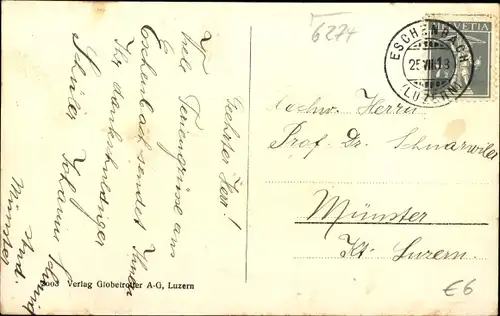 6274
HELVETIA
ESCHENBACH
25.VII.18
(LUZERN)
Geehrter Herr!
Viele Feriengrüsse aus
Eschenbach sendet Ihnen
Ihr dankschuldiger
Schüler Johann
Münster
Hochw. Herrn
Prof. Dr. Schnarwiler
Münster
Kt. Luzern.
€6
Verlag Globetrotter A-G, Luzern